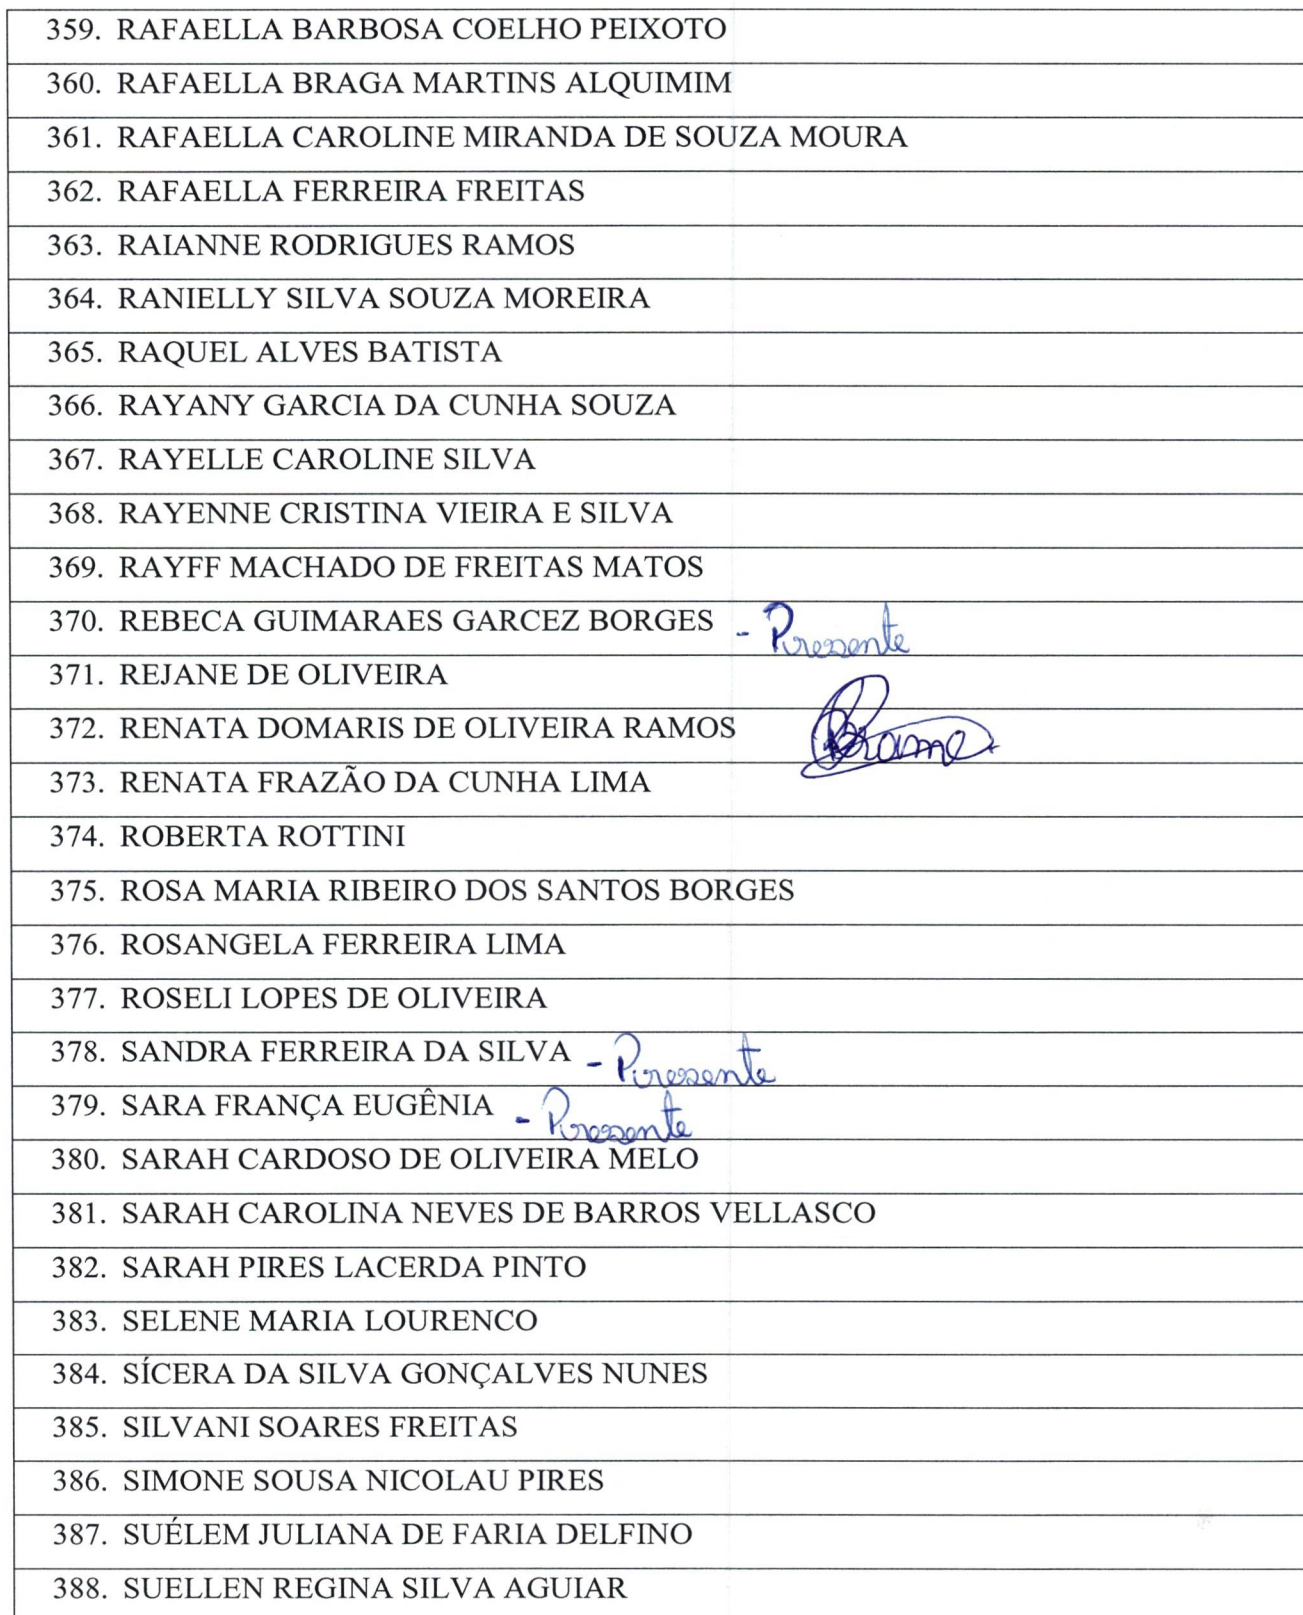 359. RAFAELLA BARBOSA COELHO PEIXOTO
360. RAFAELLA BRAGA MARTINS ALQUIMIM
361. RAFAELLA CAROLINE MIRANDA DE SOUZA MOURA
362. RAFAELLA FERREIRA FREITAS
363. RAIANNE RODRIGUES RAMOS
364. RANIELLY SILVA SOUZA MOREIRA
365. RAQUEL ALVES BATISTA
366. RAYANY GARCIA DA CUNHA SOUZA
367. RAYELLE CAROLINE SILVA
368. RAYENNE CRISTINA VIEIRA E SILVA
369. RAYFF MACHADO DE FREITAS MATOS
370. REBECA GUIMARAES GARCEZ BORGES - Presente
371. REJANE DE OLIVEIRA
372. RENATA DOMARIS DE OLIVEIRA RAMOS
373. RENATA FRAZÃO DA CUNHA LIMA
374. ROBERTA ROTTINI
375. ROSA MARIA RIBEIRO DOS SANTOS BORGES
376. ROSANGELA FERREIRA LIMA
377. ROSELI LOPES DE OLIVEIRA
378. SANDRA FERREIRA DA SILVA - Presente
379. SARA FRANÇA EUGÊNIA - Presente
380. SARAH CARDOSO DE OLIVEIRA MELO
381. SARAH CAROLINA NEVES DE BARROS VELLASCO
382. SARAH PIRES LACERDA PINTO
383. SELENE MARIA LOURENCO
384. SÍCERA DA SILVA GONÇALVES NUNES
385. SILVANI SOARES FREITAS
386. SIMONE SOUSA NICOLAU PIRES
387. SUÉLEM JULIANA DE FARIA DELFINO
388. SUELLEN REGINA SILVA AGUIAR